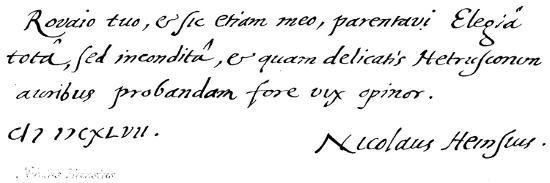 Rovaio tuo, & sic etiam meo, parentavi Elegiâ
totâ, sed inconditâ, & quam delicatis Hetruscorum
auribus probandam fore vix opinor.
CIƆ IƆCXLVII. Nicolaus Heinsius.